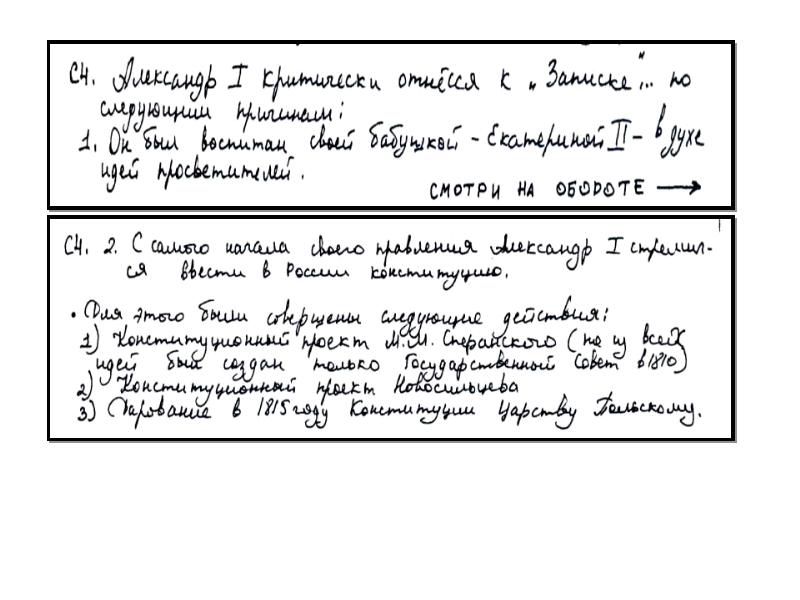 С4. Александр I критически отнёсся к „Записке"... по
следующим причинам:
1. Он был воспитан своей бабушкой - Екатериной II - в духе
идей просветителей.
СМОТРИ НА ОБОРОТЕ →
С4. 2. С самого начала своего правления Александр I стремил-
ся ввести в России конституцию.
• Для этого были совершены следующие действия:
1) Конституционный проект М.М. Сперанского (но из всех
идей был создан только Государственный Совет в 1810)
2) Конституционный проект Новосильцева
3) Дарование в 1815 году Конституции Царству Польскому.